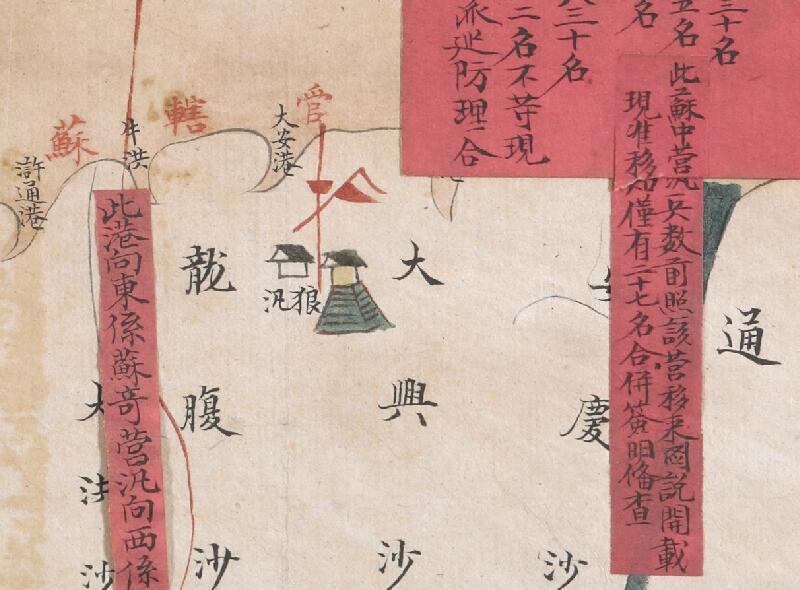 三十名
五名
名
八三十名
二名不等現
派巡防理合
此蘇中營汛兵数前照該營移来圖説開載
現准移僅有二十七名合併簽明俻查
通
慶
沙
大興沙
管
轄
蘇
大安港
狼汛
龍腹沙
牛洪
此港向東係蘇竒營汛向西係
大
沙
滸通港